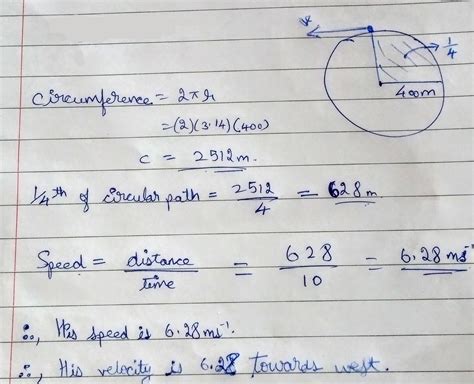 v
1/4
400m
Circumference = 2πr
= (2)(3.14)(400)
C = 2512m.
1/4th of circular path = 2512/4 = 628 m
Speed = distance/time = 628/10 = 6.28 ms⁻¹
∴, His speed is 6.28 ms⁻¹.
∴, His velocity is 6.28 towards west.